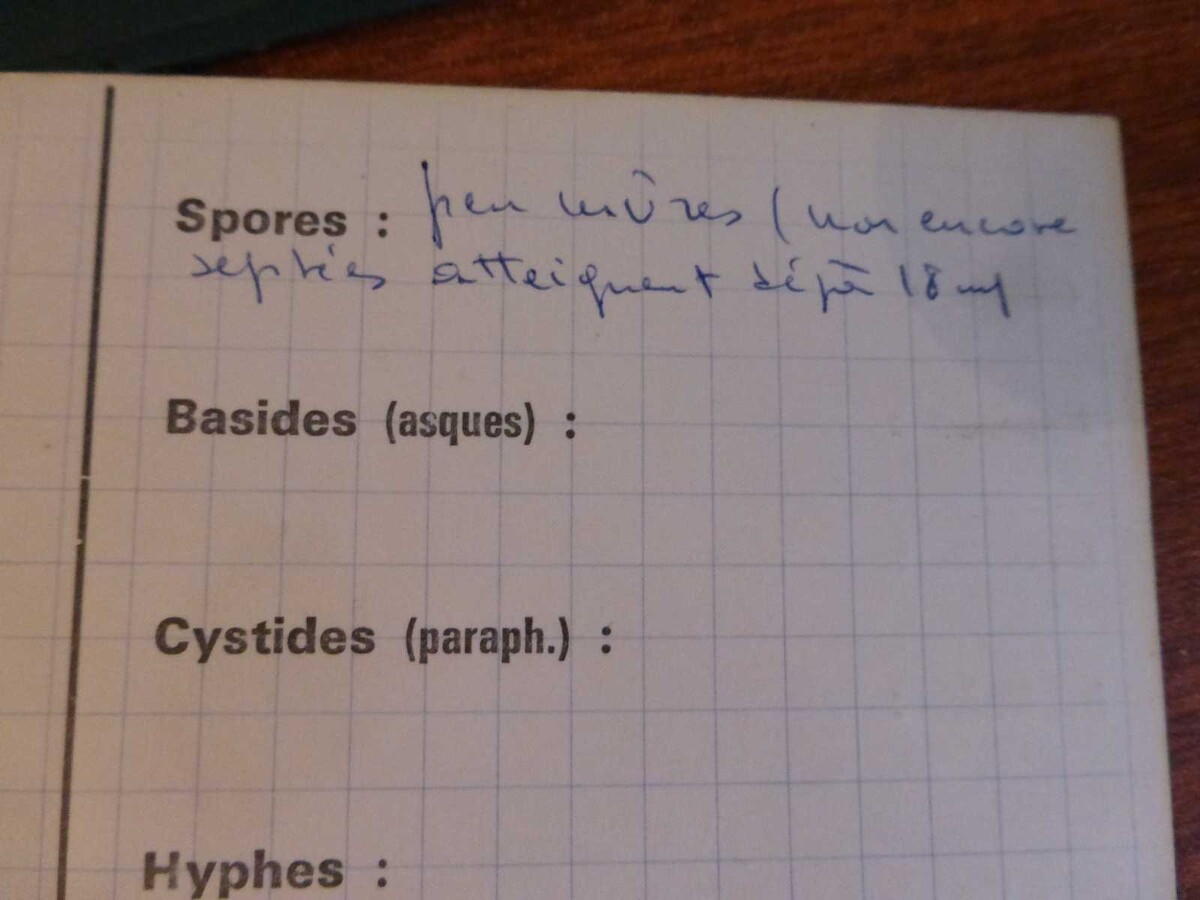 Spores : peu mûres (non encore
septées atteignent déjà 18 mµ
Basides (asques) :
Cystides (paraph.) :
Hyphes :